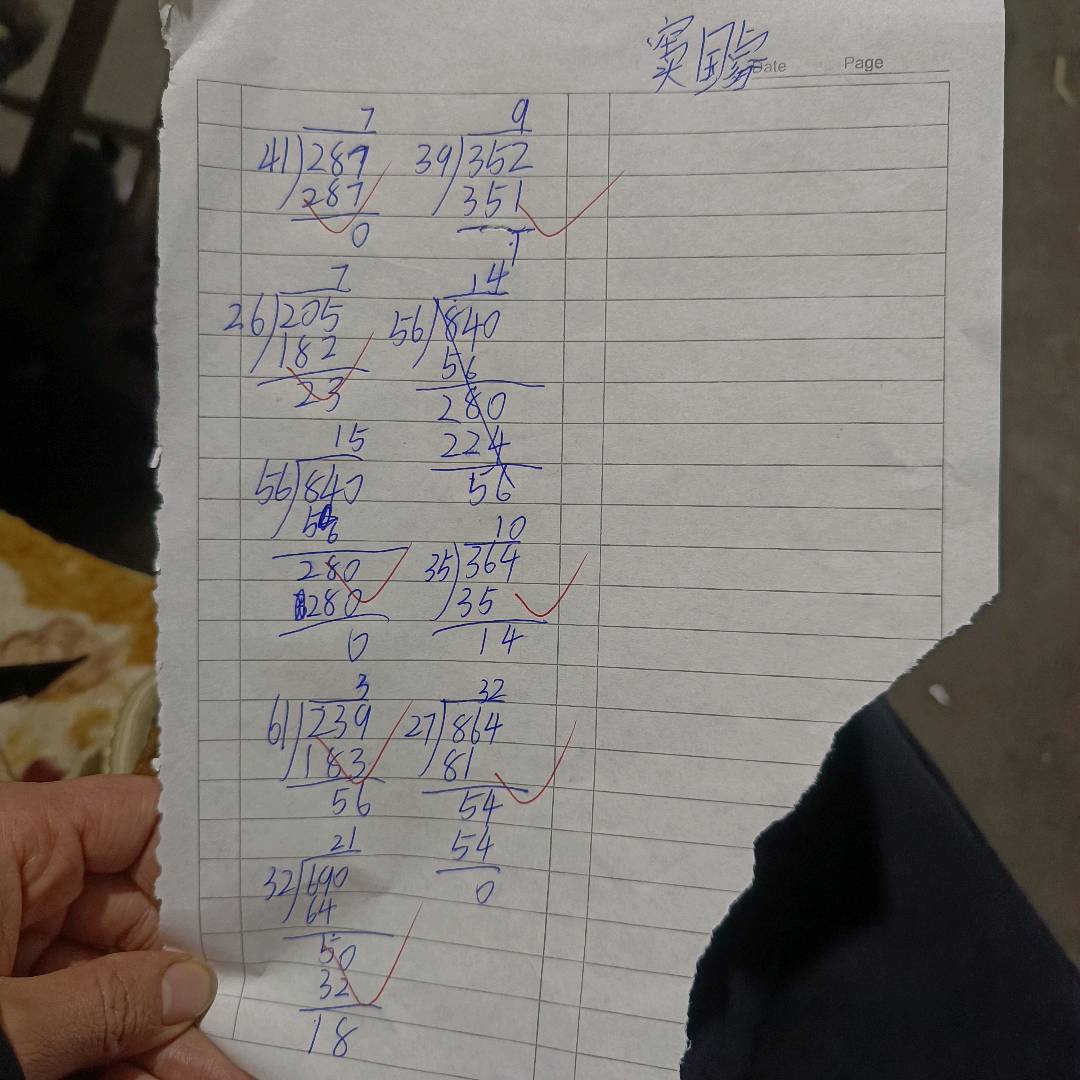 Date Page
7 9
41)287 39)352
287 351
0 1
7 14
26)205 56)840
182 56
23 280
224
56
15
56)840
56
280
280
0
10
35)364
35
14
3 32
61)239 27)864
183 81
56 54
54
0
21
32)690
64
50
32
18